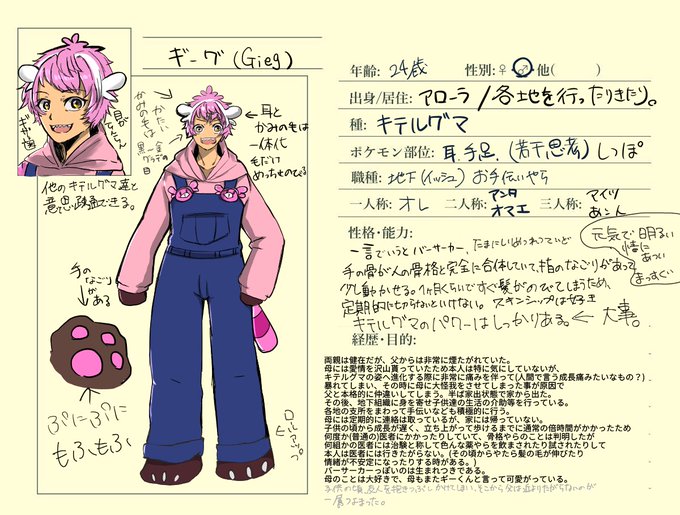 ギーグ (Gieg)
年齢: 24歳 性別: ♀ ♂ 他( )
出身/居住: アローラ/各地を行ったりきたり。
種: キテルグマ
ポケモン部位: 耳、手足、(若干思考) しっぽ
職種: 地下(イッシュ)お手伝いやら
一人称: オレ 二人称: アンタ オマエ 三人称: アイツ あの人
性格・能力:
元気で明るい
情に
あつい
まっすぐ
一言でいうとバーサーカー。
手の骨が人の骨格と完全に合体していて、指のなごりがあって
少し動かせる。1ヶ月くらいですぐ髪がのびてしまうため、
定期的に切らないといけない。スキンシップは好き
キテルグマのパワーはしっかりある。←大事。
経歴・目的:
両親は健在だが、父からは非常に煙たがれていた。
母には愛情を沢山貰っていたため本人は特に気にしていないが、
キテルグマの姿へ進化する際に非常に痛みを伴って(人間で言う成長痛みたいなもの?)
暴れてしまい、その時に母に大怪我をさせてしまった事が原因で
父と本格的に仲違いしてしまう。半ば家出状態で家から出た。
その後、地下組織に身を寄せ子供達の生活の介助等を行っている。
各地の支所をまわって手伝いなども積極的に行う。
母には定期的に連絡は取っているが、家には帰っていない。
子供の頃から成長が遅く、立ち上がって歩けるまでに通常の倍時間がかかったため
何度か(普通の)医者にかかったりしていて、骨格やらのことは判明したが
何組かの医者には治験と称して色んな薬やらを飲まされたり試されたりして
本人は医者には行きたがらない。(その頃からやたら髪の毛が伸びたり
情緒が不安定になったりする時がある。)
バーサーカーっぽいのは生まれつきである。
母のことは大好きで、母もまたギーくんと言って可愛がっている。
目がてんてん
ギザ歯
他のキテルグマ達と
意思疎通できる。
かたい
かみの毛は
黒→金
グラデの
目
耳と
かみの毛は
一体化
毛だけ
めっちゃのびる
手の
なごり
が
ある
ぷにぷに
もふもふ
ロールアップ